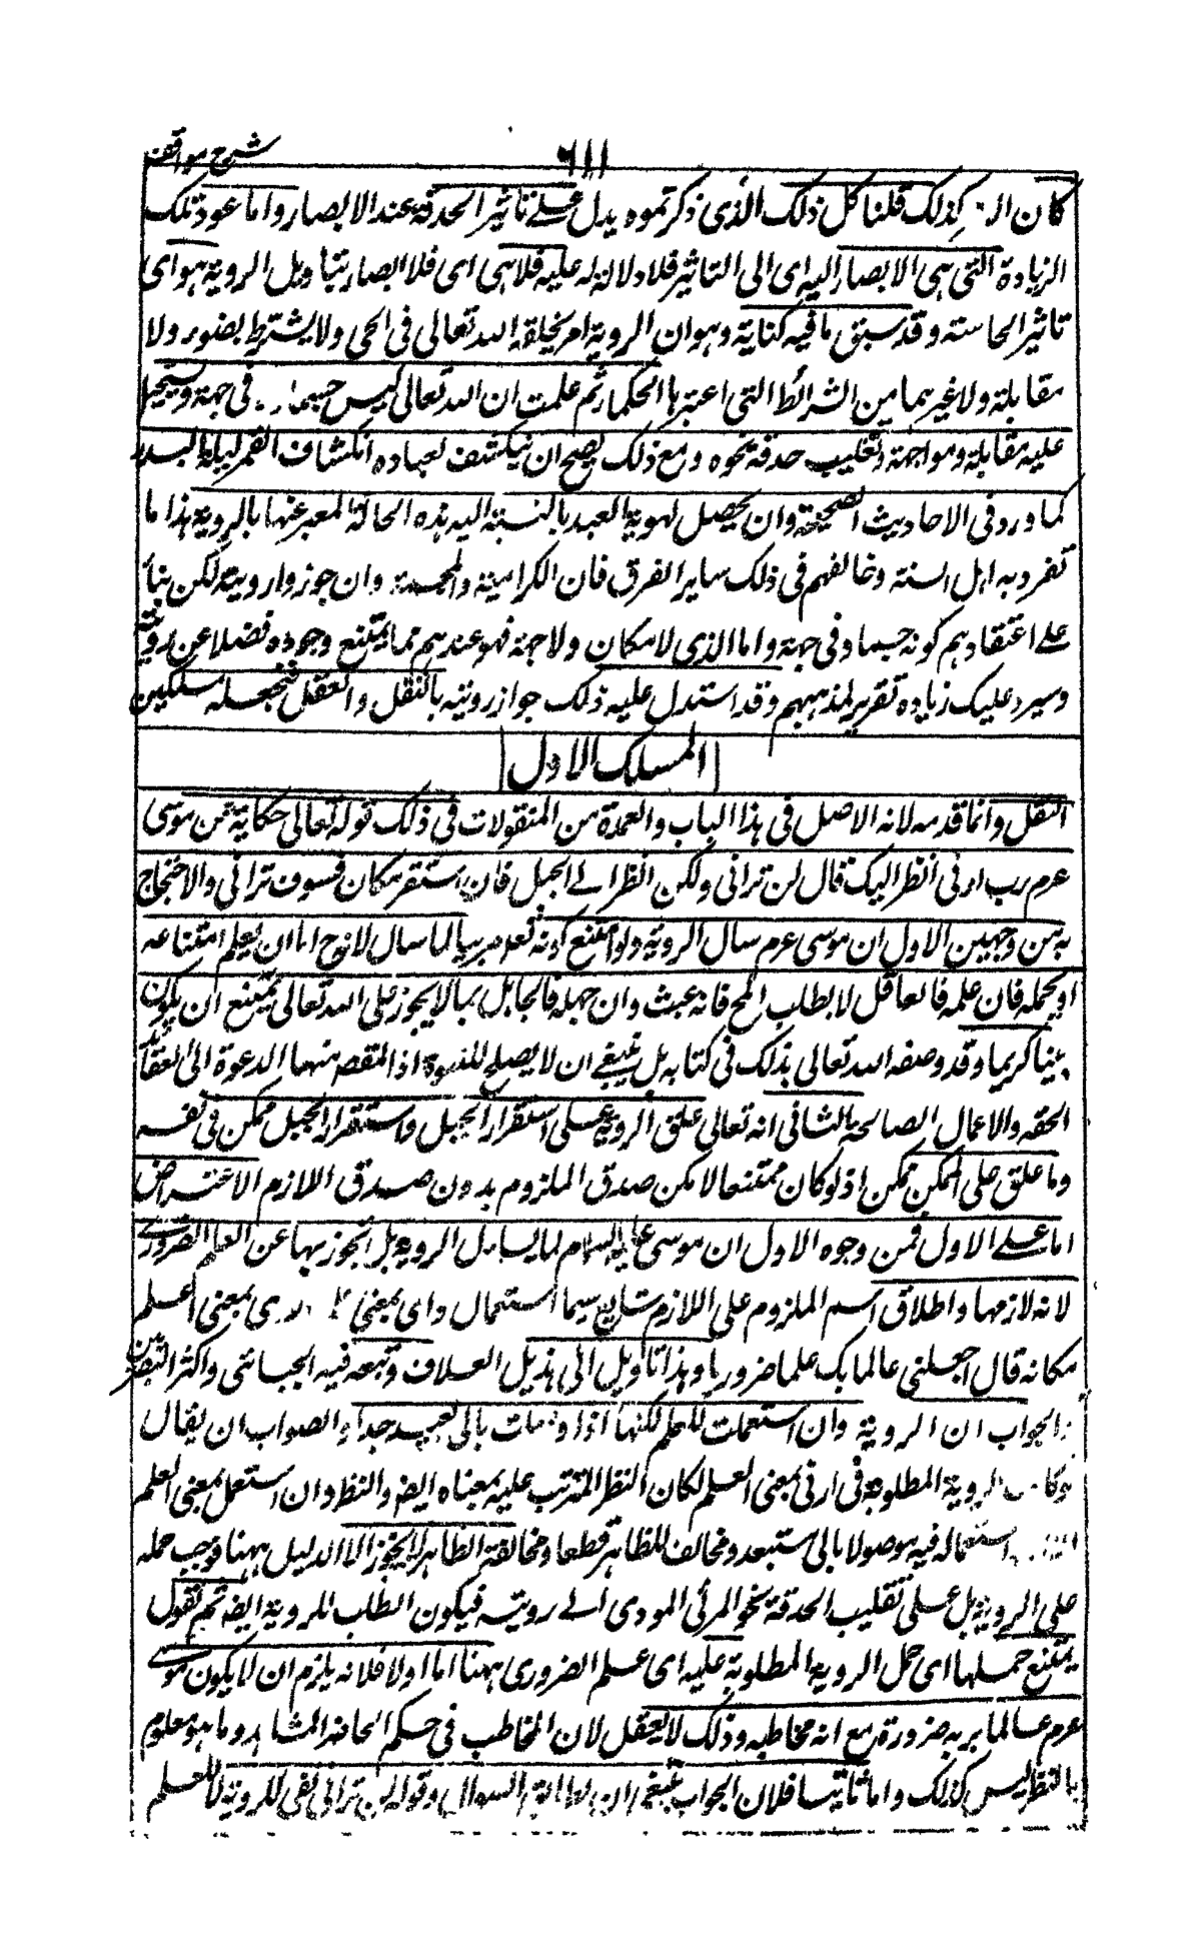 شرح مواقف
٦١١
كان الـ كذلك قلنا كل ذلك الذى ذكرتموه يدل على تاثير الحدقة عند الابصار واما عود تلك
الزيادة التى هى الابصار اليه اى الى التاثير فلا دلالة له عليه فلا هى اى فلا ابصار يتاويل الروية هو اى
تاثير الحاسته وقد سبق ما فيه كناية وهو ان الروية امر يخلقه الله تعالى فى الحى ولا يشترط بضور ولا
مقابلة ولا غيرهما من الشرائط التى اعتبرها الحكماء ثم علمت ان الله تعالى ليس جسما فى جهة ويستحيل
عليه مقابلة ومواجهة وتقليب حدقة نحوه ومع ذلك يصح ان ينكشف لعباده انكشاف القمر ليلة البدر
كما ورد فى الاحاديث الصحيحة وان يحصل لهوية العبد بالنسبة اليه هذه الحالة المعبر عنها بالروية هذا ما
تفرد به اهل السنة وخالفهم فى ذلك ساير الفرق فان الكرامية والمجسمة وان جوزوا روية لكن بناء
على اعتقادهم كونه جسما وفى جهة واما الذى لا مكان ولا جهة فهو عندهم مما يمتنع وجوده فضلا عن رويته
وسيرد عليك زيادة تقرير لمذهبهم وقد استدل عليه ذلك جواز رويته بالنقل والعقل فنجعله مسلكين
المسلك الاول
النقل وانما قدمه لانه الاصل فى هذا الباب والعمدة من المنقولات فى ذلك قوله تعالى حكاية عن موسى
عرم رب ارنى انظر اليك قال لن ترانى ولكن انظر الى الجبل فان استقر مكانه فسوف ترانى والاحتجاج
به من وجهين الاول ان موسى عرم سال الروية ولو امتنع كونه تعالى مرييا لما سال لانه ح اما ان يعلم امتناعه
او يجهله فان علمه فالعاقل لا يطلب المح فانه عبث وان جهله فالجاهل بما لا يجوز على الله تعالى يمتنع ان يكون
نبيا كريما وقد وصفه الله تعالى بذلك فى كتابه بل ينبغى ان لا يصلح للنبوة اذ المقصد منها الدعوة الى العقائد
الحقه والاعمال الصالحة الثانى انه تعالى علق الروية على استقرار الجبل واستقرار الجبل ممكن فى نفسه
وما علق على الممكن ممكن اذ لو كان ممتنعا لامكن صدق الملزوم بدون صدق اللازم الاعتراض
اما على الاول فمن وجوه الاول ان موسى عليه السلام لم يسال الروية بل تجوز بها عن العلم الضرورى
لانه لازمها واطلاق اسم الملزوم على اللازم شايع سيما استعمال راى بمعنى بمعنى اعلم
مكانه قال اجعلنى عالما بك علما ضروريا وهذا تاويل ابى هذيل العلاف وتبعه فيه الجبائى واكثر البصريين
والجواب ان الروية وان استعملت للعلم لكنها اذا بالى بعيد جدا والصواب ان يقال
لو كان الروية المطلوبة فى ارنى بمعنى العلم لكان النظر المترتب عليه بمعناه ايض والنظر وان استعمل بمعنى العلم
استعماله فيه موصولا بالى مستبعد ومخالف للظاهر قطعا ومخالفة الظاهر لا يجوز الا لدليل ههنا فوجب حمله
على الروية بل على تقليب الحدقة نحو المرئى المودى الى رويته فيكون الطلب للروية ايض ثم نقول
يمتنع حملها اى حمل الروية المطلوبة عليه اى على علم الضرورى ههنا اما اولا فلانه يلزم ان لا يكون موسى
عرم عالما بربه ضرورة مع انه مخاطبه وذلك لا يعقل لان المخاطب فى حكم الحاضر المشاهد وما هو معلوم
بالنظر ليس كذلك واما ثانيا فلان الجواب ينبغى ان يطابق السوال وقوله لن ترانى نفى للروية لا للعلم